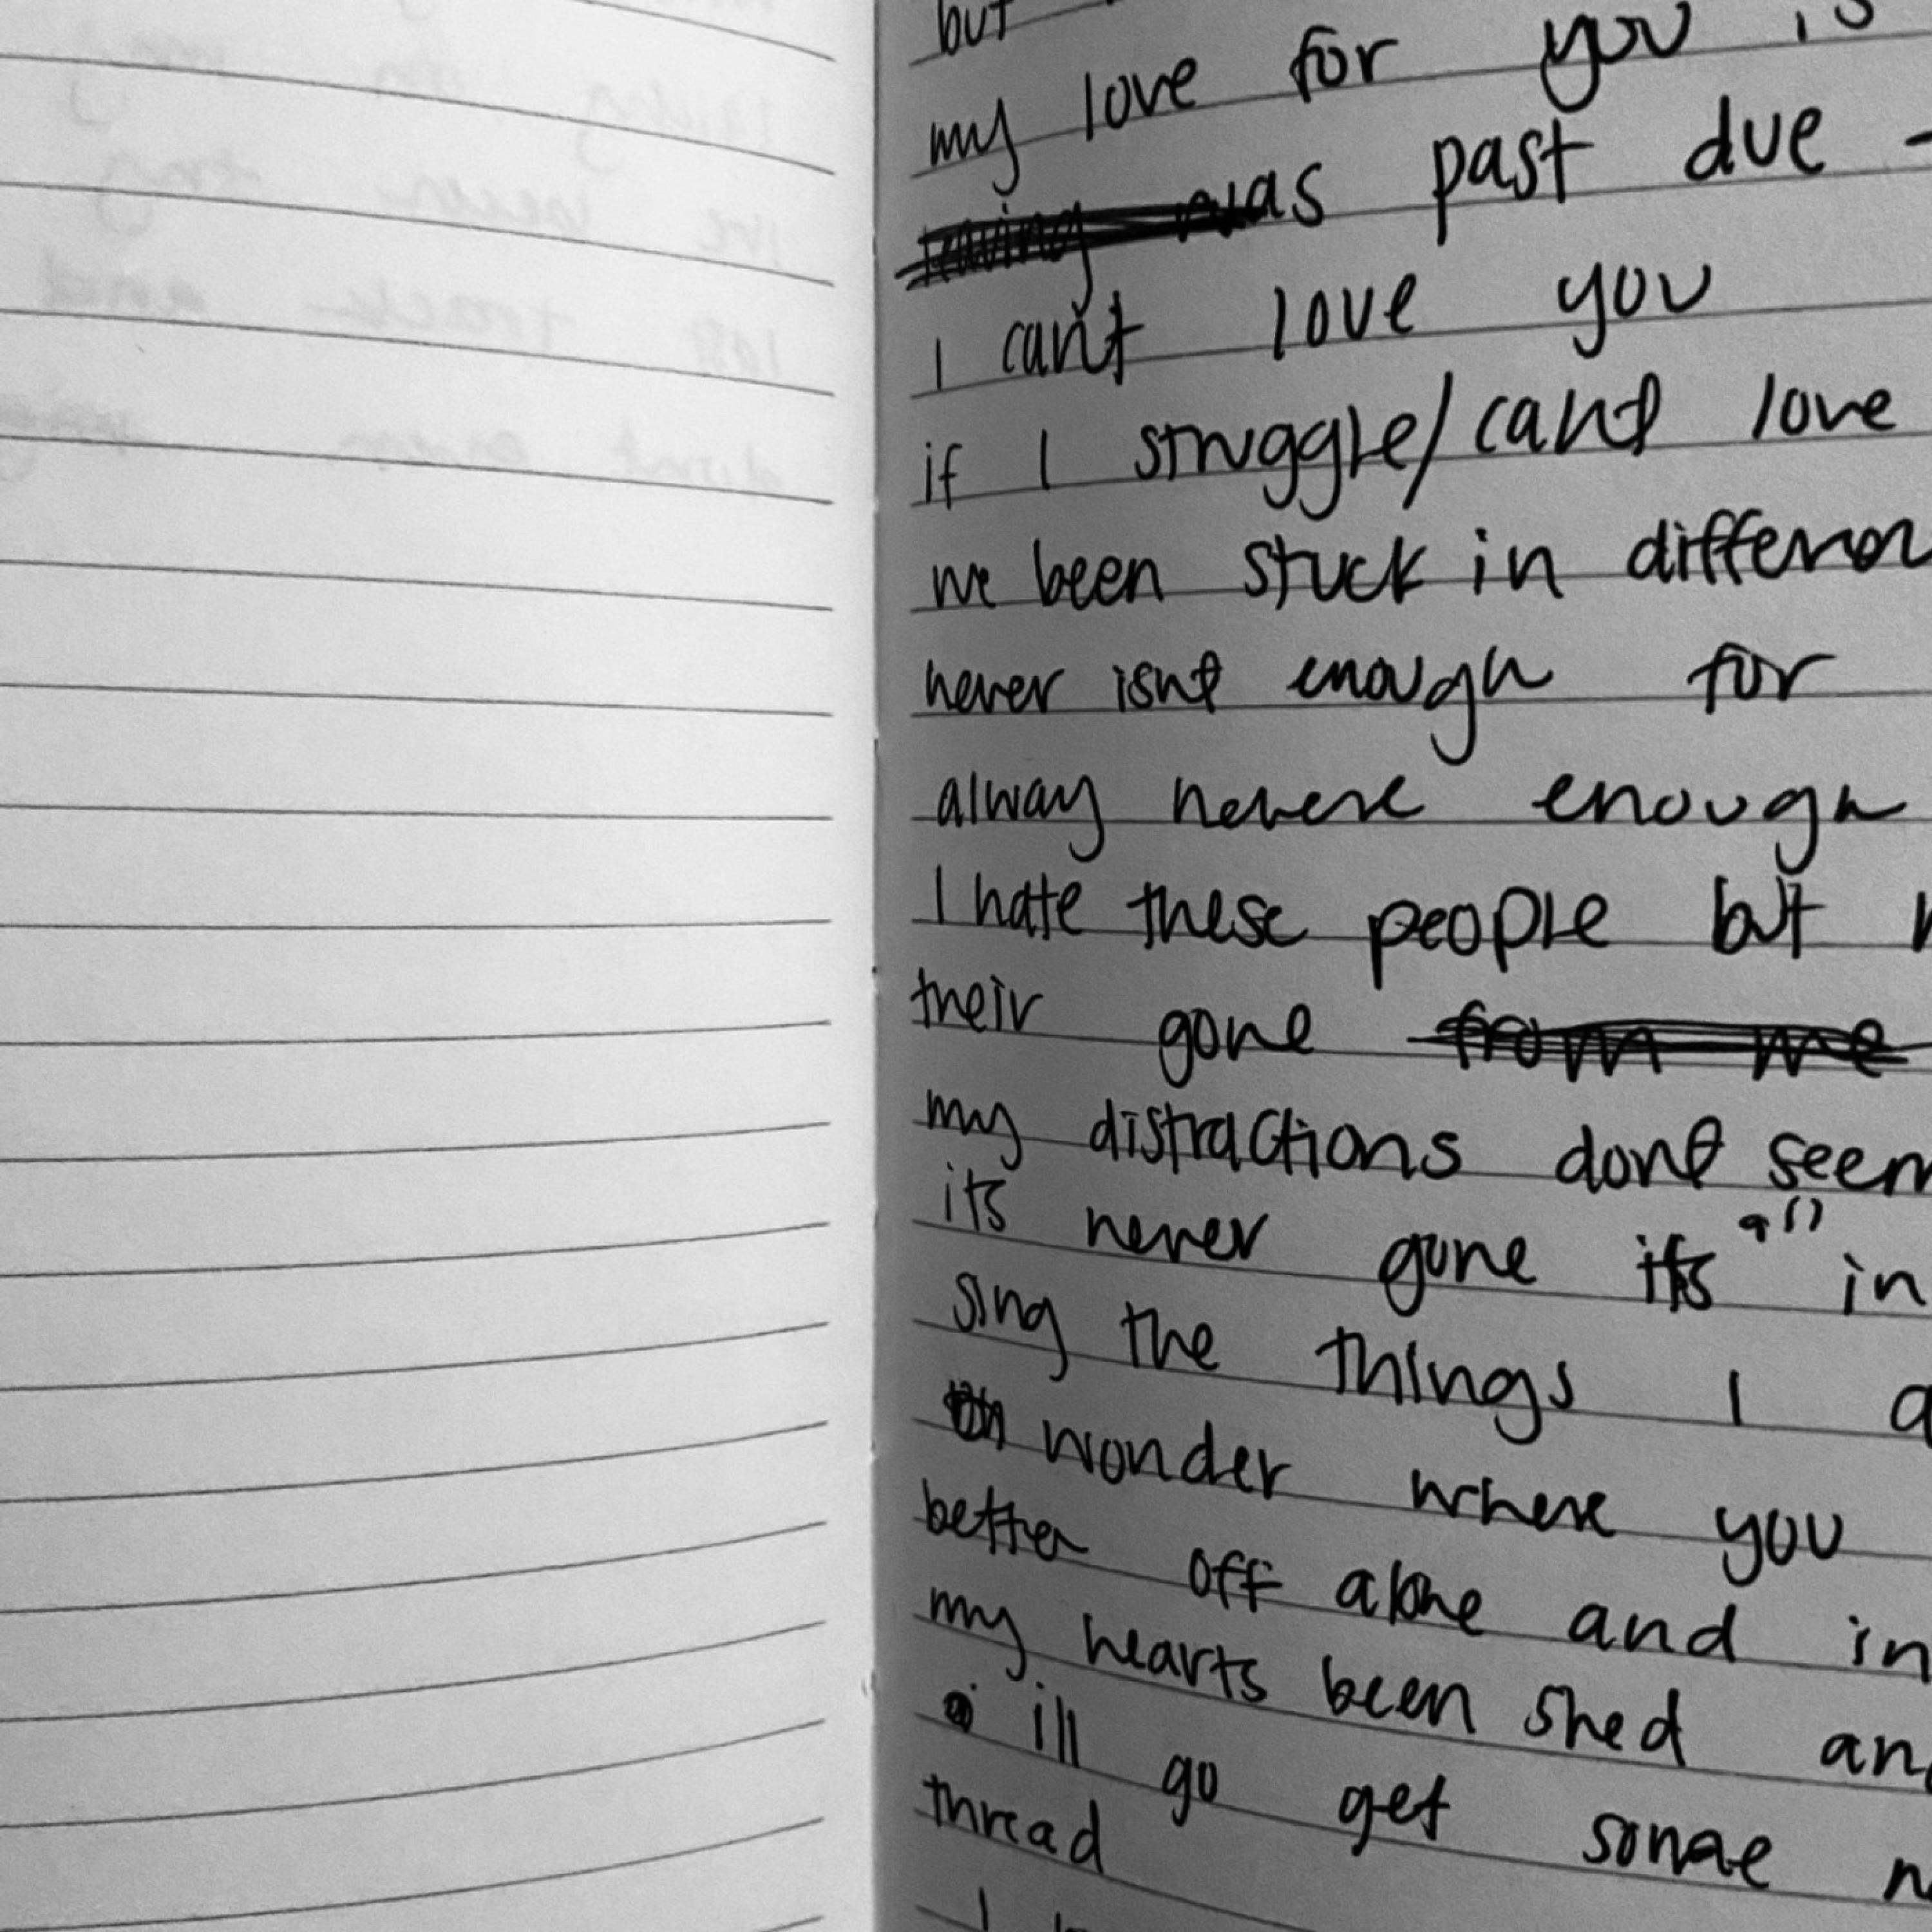 but
my love for you is
as past due -
i can't love you
if I struggle/cant love
we been stuck in
never isnt enough for
alway nevere enough
I hate these people but
their gone from me
my distractions dont seem
its never gone its all in
sing the things I
wonder where you
better off alone and in
my hearts been shed
ill go get some
thread
I